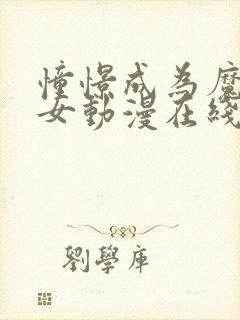 憧憬成為魔
女動漫在綫
劉學庫